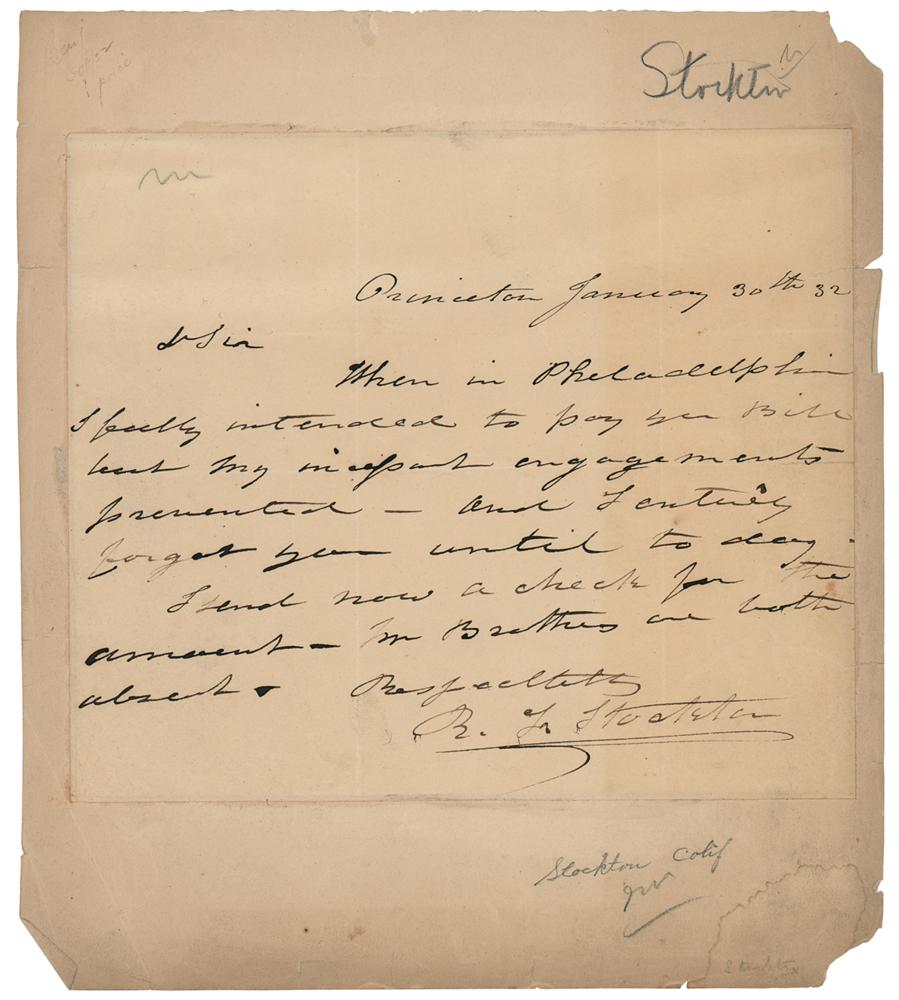 Stockton
Princeton January 30th 32
D Sir
When in Philadelphia
I fully intended to pay your Bill
but my engagements
prevented – and I entirely
forgot you until to day.
I send now a check for the
amount – Brothers are both
absent.
Respectfully
R. F. Stockton
Stockton Calif
Stockton